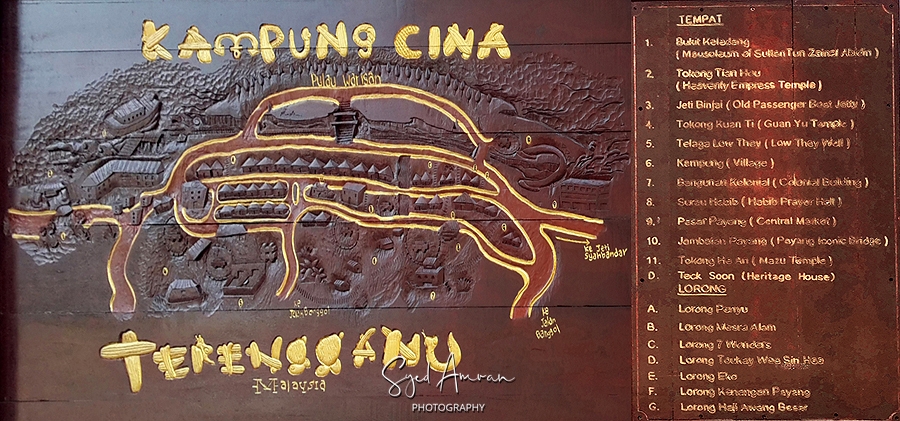 KAMPUNG CINA
Pulau Warisan
ke Jeti
Syahbandar
ke
Jalan Banggol
ke
Jalan
Banggol
TERENGGANU
Malaysia
Syed Amran
PHOTOGRAPHY
TEMPAT
1. Bukit Keledang
( Mausoleum of Sultan Tun Zainal Abidin )
2. Tokong Tian Hou
( Heavenly Empress Temple )
3. Jeti Binjai ( Old Passenger Boat Jetty )
4. Tokong Kuan Ti ( Guan Yu Temple )
5. Telaga Low They ( Low They Well )
6. Kampung ( Village )
7. Bangunan Kolonial ( Colonial Building )
8. Surau Habib ( Habib Prayer Hall )
9. Pasar Payang ( Central Market )
10. Jambatan Payang ( Payang Iconic Bridge )
11. Tokong Ho An ( Mazu Temple )
D. Teck Soon (Heritage House)
LORONG
A. Lorong Penyu
B. Lorong Mesra Alam
C. Lorong 7 Wonders
D. Lorong Taukay Wee Sin Hee
E. Lorong Eko
F. Lorong Kenangan Payang
G. Lorong Haji Awang Besar